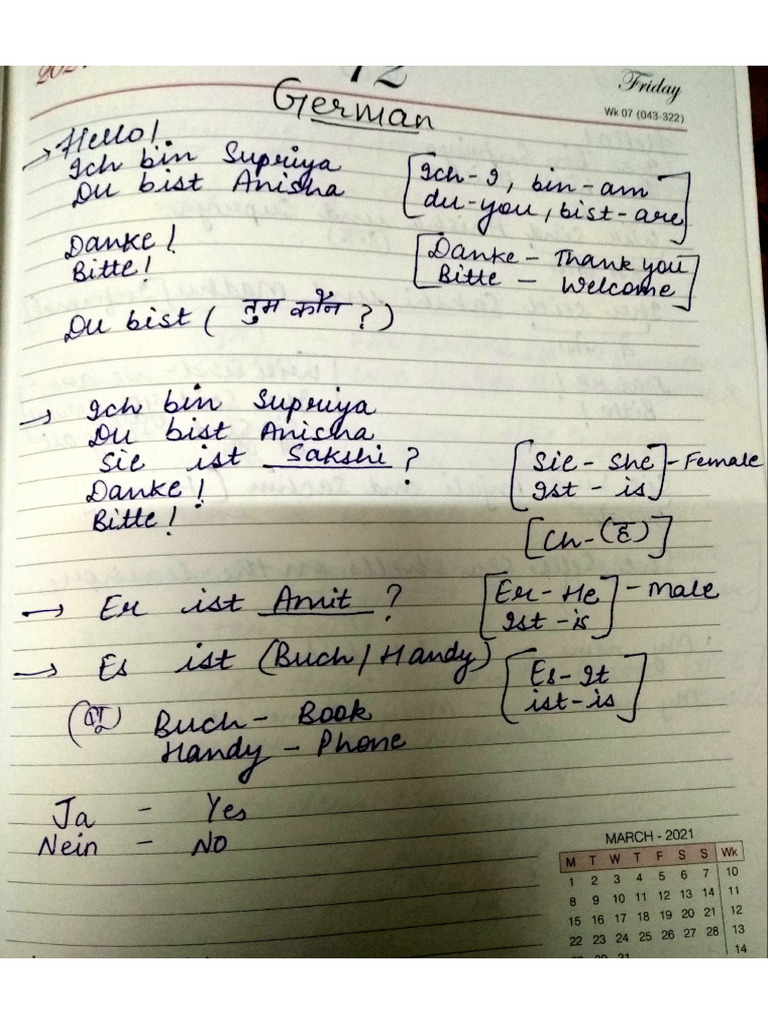 12
Friday
Wk 07 (043-322)
German
→ Hello!
Ich bin Supriya
Du bist Anisha
[Ich - I, bin - am
du - you, bist - are]
Danke!
Bitte!
[Danke - Thank you
Bitte - Welcome]
Du bist ( तुम कौन ?)
→ Ich bin Supriya
Du bist Anisha
Sie ist Sakshi ?
Danke!
Bitte!
[Sie - She
Ist - is] - Female
[Ch - (ह)]
→ Er ist Amit ?
[Er - He
Ist - is] - male
→ Es ist (Buch / Handy)
[Es - It
ist - is]
Buch - Book
Handy - Phone
Ja - Yes
Nein - No
MARCH - 2021
M T W T F S S Wk
1 2 3 4 5 6 7 10
8 9 10 11 12 13 14 11
15 16 17 18 19 20 21 12
22 23 24 25 26 27 28 13
14